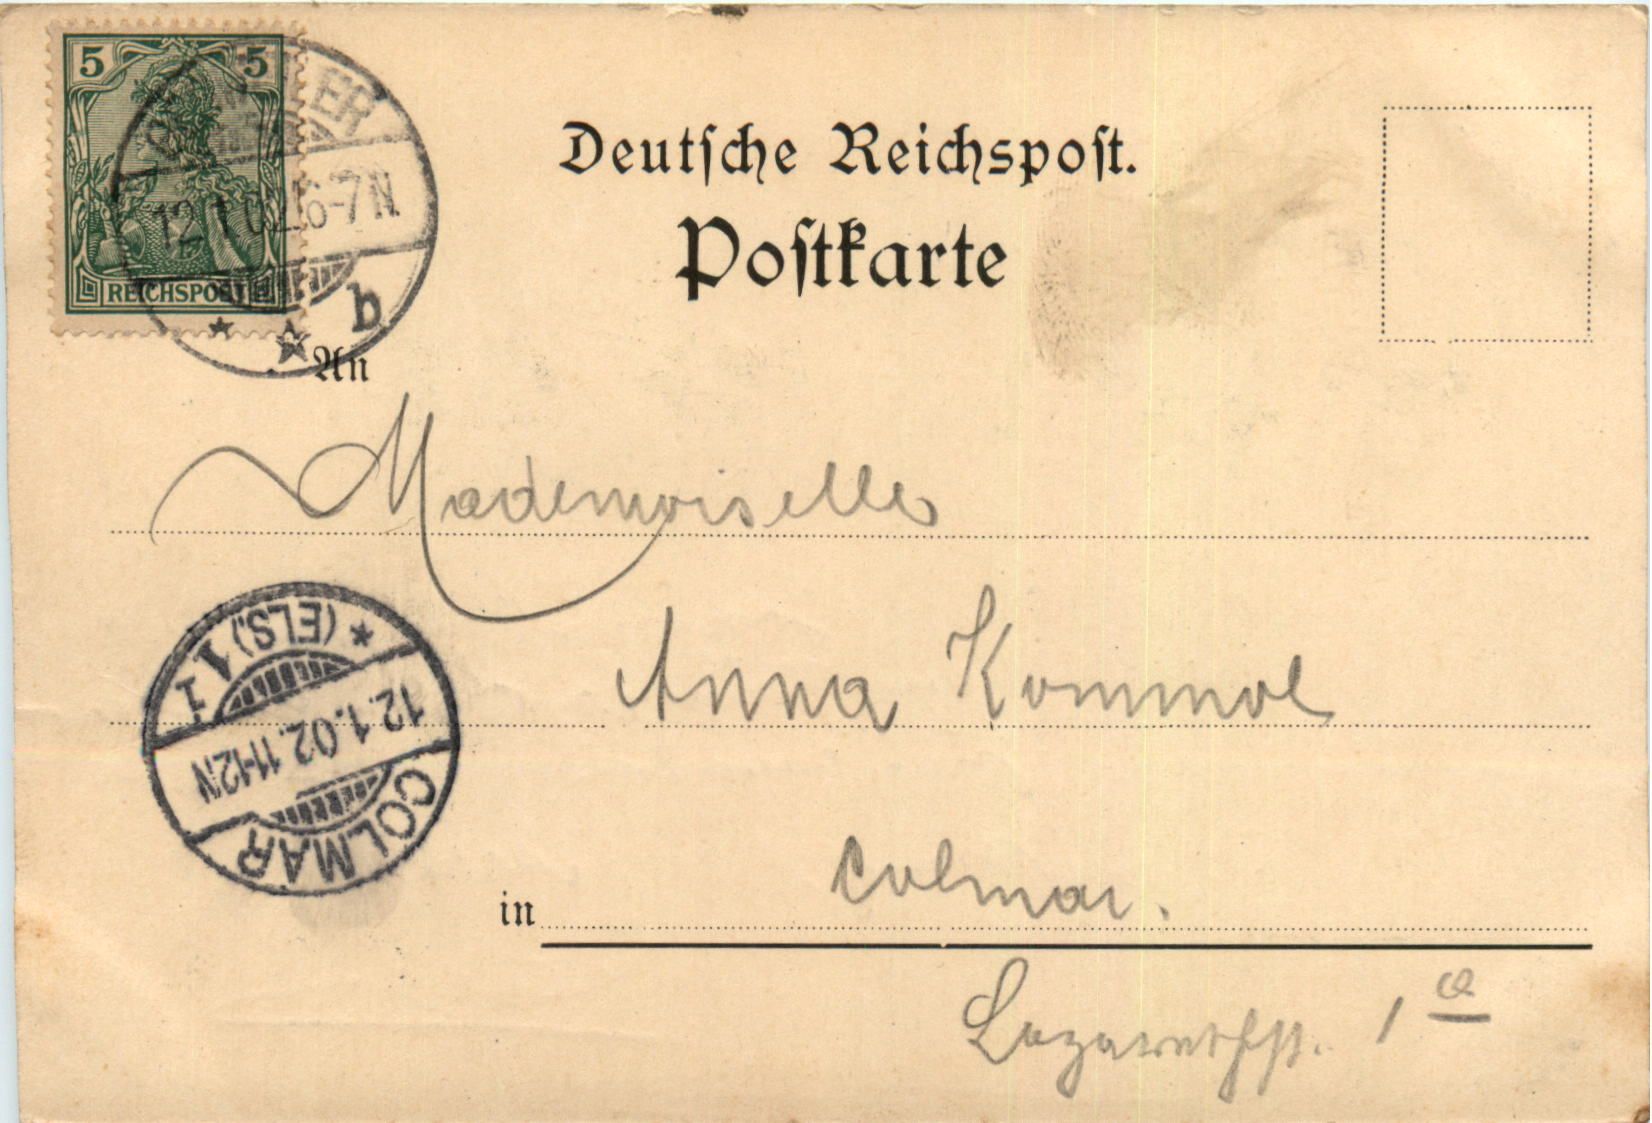 5 5
REICHSPOST
12.1.02. 6-7N
b
Deutsche Reichspost.
Postkarte
An
Mademoiselle
(ELS.) 1
12.1.02. 11-12N
COLMAR
Anna Kommol
in Colmar.
Lazarethst. 1 a